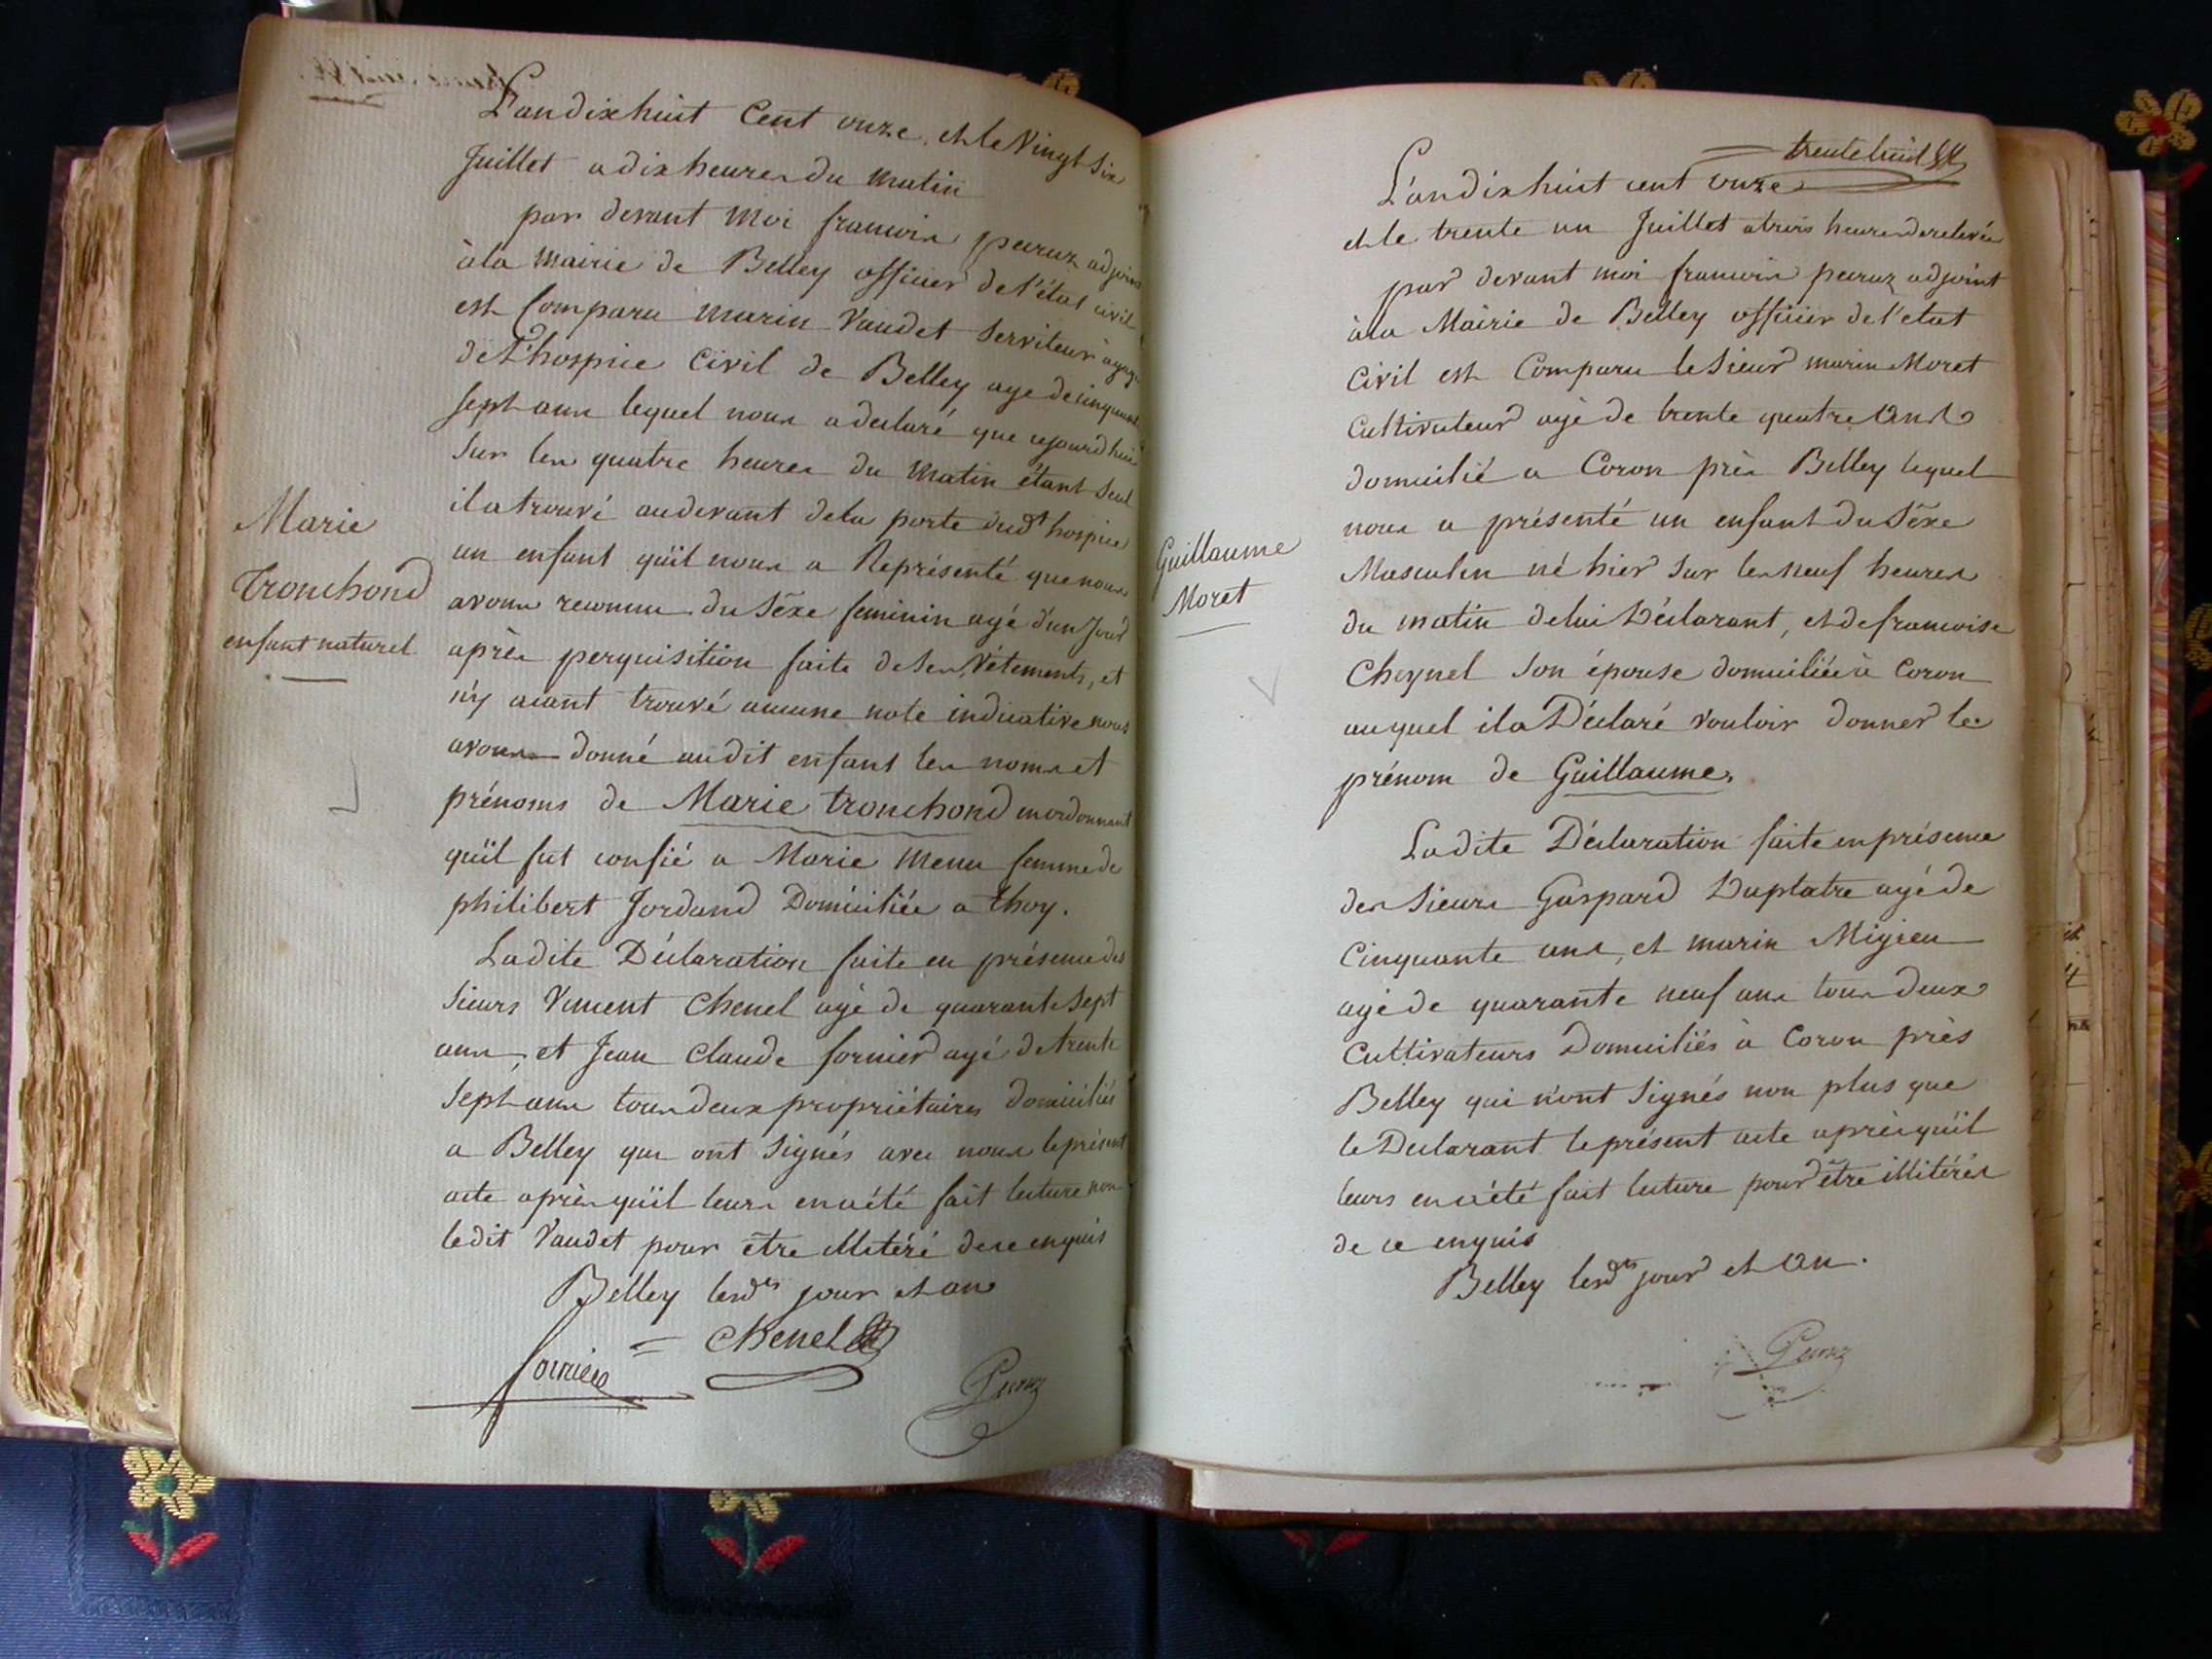 L'an dix huit Cent onze, et le Vingt Six
Juillet a dix heures du matin
par devant moi francois peeruz adjoint
à la Mairie de Belley officier de l'état civil
est Comparu marin Vaudet Serviteur à gage
de L'hospice Civil de Belley agé de cinquante
sept ans lequel nous a declaré que cejourdhui
sur les quatre heures du Matin étant Seul
il a trouvé au devant de la porte dudt hospice
un enfant qu'il nous a Représenté que nous
avons reconnu du Séxe feminin agé d'un Jour
après perquisition faite de ses Vétements, et
n'y aiant trouvé aucune note indicative nous
avons donné au dit enfant les noms et
prénoms de Marie tronchond en ordonnant
qu'il fut confié a Marie Menu femme de
philibert Jordand Domiciliée a thoy.
Ladite Déclaration faite en présence des
Sieurs Vincent Chenel agé de quarante Sept
ans, et Jean Claude fornier agé de trente
Sept ans tous deux propriétaires domiciliés
a Belley qui ont Signés avec nous le présent
acte après qu'il leurs en a été fait lecture non
ledit Vaudet pour être illitéré de ce enquis
Belley lesdts jour et an
Chenel
fornier
Marie
Tronchond
enfant naturel
trente huit
L'an dix huit cent onze
et le trente un Juillet a trois heures de relevée
par devant moi francois peeruz adjoint
à la Mairie de Belley officier de l'etat
Civil est Comparu le Sieur marin Moret
Cultivateur agé de trente quatre Ans
domicilié a Coron près Belley lequel
nous a présenté un enfant du Séxe
Masculin né hier Sur les Neuf heures
du matin de lui Déclarant, et de francoise
Cheynel Son épouse domiciliée à Coron
auquel il a Déclaré vouloir donner le
prénom de Guillaume.
Ladite Déclaration faite en présence
des Sieurs Gaspard Duplatre agé de
Cinquante ans, et marin Migieu
agé de quarante neuf ans tous deux
Cultivateurs Domiciliés à Coron près
Belley qui n'ont Signés non plus que
le Declarant le présent acte après qu'il
leurs en a été fait lecture pour être illitérés
de ce enquis
Belley lesdts jour et an.
Guillaume
Moret